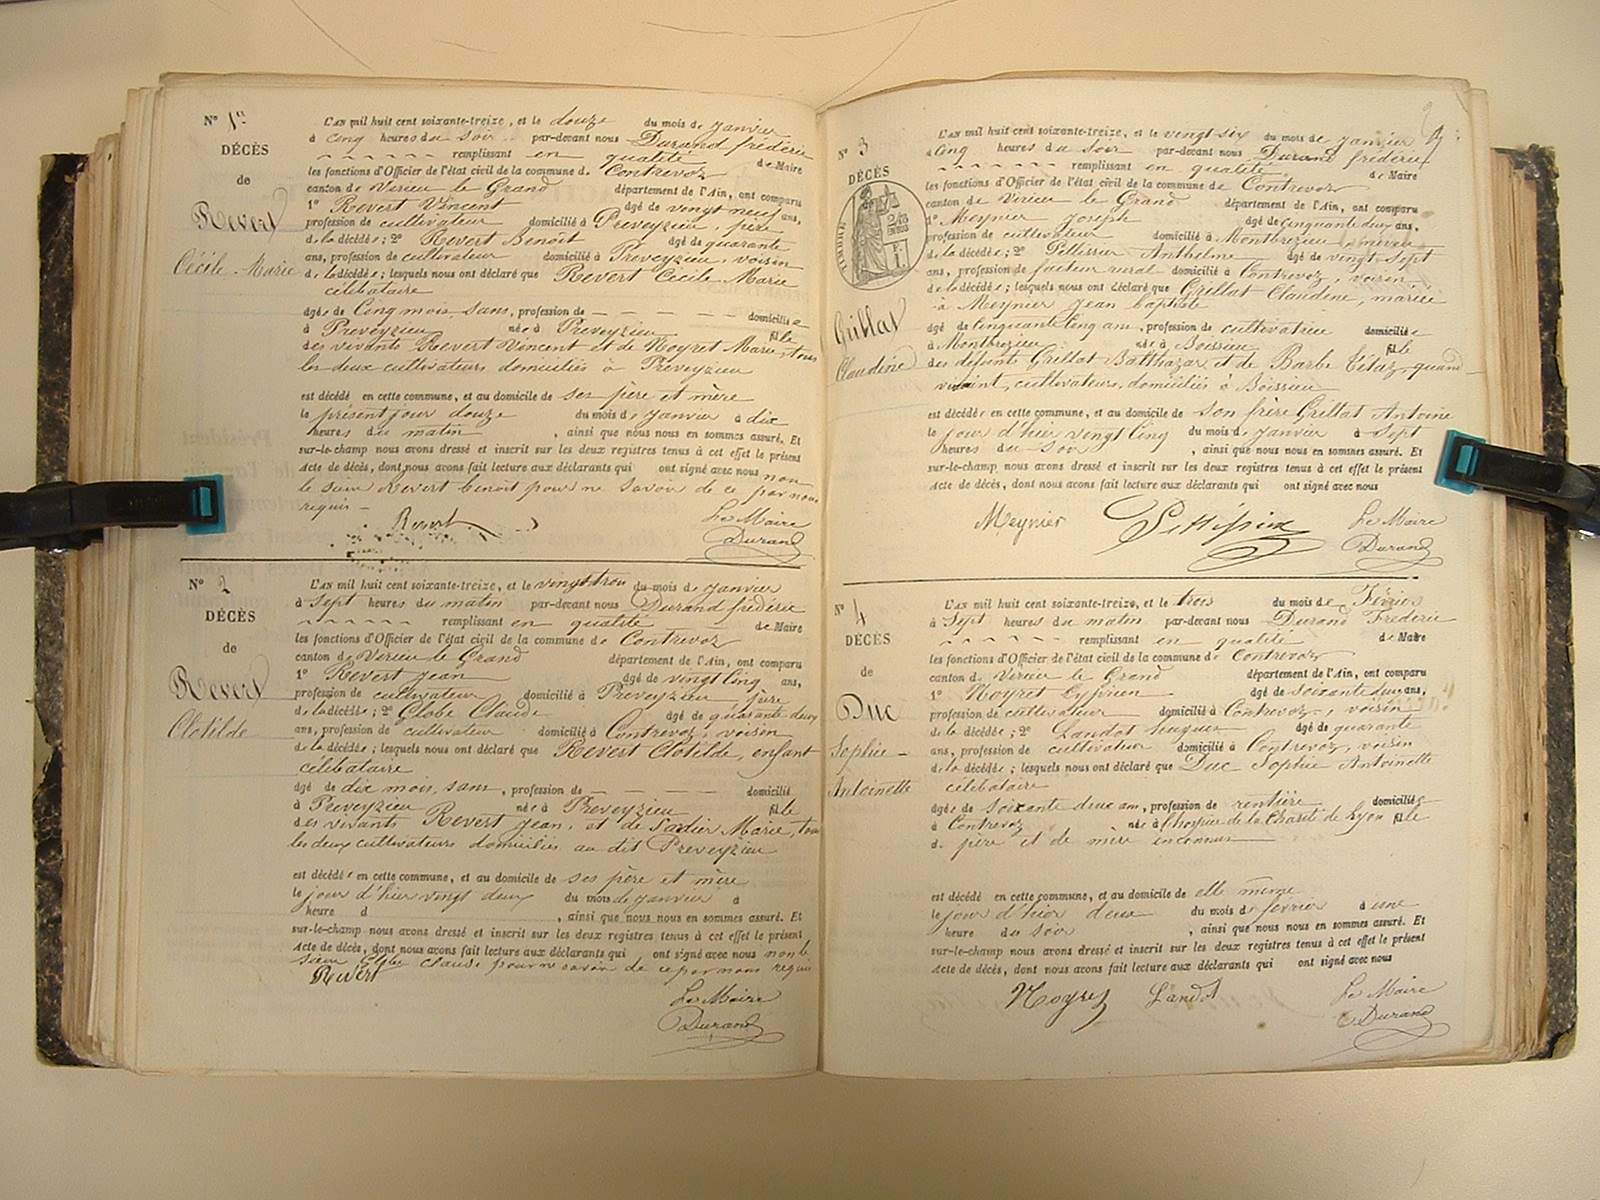 N° 1er
DÉCÈS
de
Revert
Cécile-Marie
L'AN mil huit cent soixante-treize, et le douze du mois de janvier
à cinq heures du soir par-devant nous Durand frédéric
remplissant en qualité de Maire
les fonctions d'Officier de l'état civil de la commune de Contrevoz
canton de Virieu le Grand département de l'Ain, ont comparu
1° Revert Vincent âgé de vingt neuf ans,
profession de cultivateur domicilié à Preveyzieu, père
de la décédée; 2° Revert Benoit âgé de quarante
ans, profession de cultivateur domicilié à Preveyzieu, voisin
de la décédée; lesquels nous ont déclaré que Revert Cécile Marie
célibataire
âgée de Cinq mois, sans, profession de domiciliée
à Preveyzieu née à Preveyzieu fille
des vivants Revert Vincent et de Noyret Marie, tous
les deux cultivateurs domiciliés à Preveyzieu
est décédé en cette commune, et au domicile de ses père et mère
le présent jour douze du mois de janvier à dix
heures du matin, ainsi que nous nous en sommes assuré. Et
sur-le-champ nous avons dressé et inscrit sur les deux registres tenus à cet effet le présent
Acte de décès, dont nous avons fait lecture aux déclarants qui ont signé avec nous non
le sieur Revert benoit pour ne savoir de ce par nous
requis
Revert Le Maire
Durand
N° 2
DÉCÈS
de
Revert
Clotilde
L'AN mil huit cent soixante-treize, et le vingt trois du mois de janvier
à Sept heures du matin par-devant nous Durand frédéric
remplissant en qualité de Maire
les fonctions d'Officier de l'état civil de la commune de Contrevoz
canton de Virieu le Grand département de l'Ain, ont comparu
1° Revert jean âgé de vingt Cinq ans,
profession de cultivateur domicilié à Preveyzieu père
de la décédée; 2° Globe Claude âgé de quarante deux
ans, profession de cultivateur domicilié à Contrevoz, voisin
de la décédée; lesquels nous ont déclaré que Revert Clotilde, enfant
célibataire
âgé de dix mois, sans, profession de domicilié
à Preveyzieu née à Preveyzieu fille
des vivants Revert jean, et de Sadier Marie, tous
les deux cultivateurs domiciliés au dit Preveyzieu
est décédée en cette commune, et au domicile de ses père et mère
le jour d'hier vingt deux du mois de janvier à
heure d, ainsi que nous nous en sommes assuré. Et
sur-le-champ nous avons dressé et inscrit sur les deux registres tenus à cet effet le présent
Acte de décès, dont nous avons fait lecture aux déclarants qui ont signé avec nous non le
sieur Globe claude pour ne savoir de ce par nous requis
Revert
Le Maire
Durand
N° 3
DÉCÈS
TIMBRE
Grillat
Claudine
L'AN mil huit cent soixante-treize, et le vingt six du mois de janvier
à Cinq heures du soir par-devant nous Durand frédéric
remplissant en qualité de Maire
les fonctions d'Officier de l'état civil de la commune de Contrevoz
canton de Virieu le Grand département de l'Ain, ont comparu
1° Meynier Joseph âgé de Cinquante deux ans,
profession de cultivateur domicilié à Montbrezieu neveu
de la décédée; 2° Pellissier Anthelme âgé de vingt-Sept
ans, profession de facteur rural domicilié à Contrevoz, voisin,
de la décédée; lesquels nous ont déclaré que Grillat Claudine, mariée
à Meynier jean baptiste
âgé de Cinquante Cinq ans, profession de cultivatrice domiciliée
à Montbrezieu née à Boissieu fille
des défunts Grillat Balthazar et de Barbe Tétaz, quand
vivaint, cultivateurs, domiciliés à Boissieu
est décédée en cette commune, et au domicile de son frère Grillat Antoine
le jour d'hier vingt Cinq du mois de janvier à Sept
heures du Soir, ainsi que nous nous en sommes assuré. Et
sur-le-champ nous avons dressé et inscrit sur les deux registres tenus à cet effet le présent
Acte de décès, dont nous avons fait lecture aux déclarants qui ont signé avec nous
Meynier Pellissier Le Maire
Durand
N° 4
DÉCÈS
de
Duc
Sophie-
Antoinette
L'AN mil huit cent soixante-treize, et le trois du mois de Février
à Sept heures du matin par-devant nous Durand Frédéric
remplissant en qualité de Maire
les fonctions d'Officier de l'état civil de la commune de Contrevoz
canton de Virieu le Grand département de l'Ain, ont comparu
1° Noyret Cyprien âgé de soixante deux ans,
profession de cultivateur domicilié à Contrevoz, voisin
de la décédée; 2° Landot hugues âgé de quarante
ans, profession de cultivateur domicilié à Contrevoz, voisin
de la décédée; lesquels nous ont déclaré que Duc Sophie Antoinette
célibataire
âgée de soixante deux ans, profession de rentière domiciliée
à Contrevoz née à l'hospice de la Charité de Lyon fille
de père et de mère inconnus
est décédé en cette commune, et au domicile de elle même
le jour d'hier deux du mois de février à une
heure du Soir, ainsi que nous nous en sommes assuré. Et
sur-le-champ nous avons dressé et inscrit sur les deux registres tenus à cet effet le présent
Acte de décès, dont nous avons fait lecture aux déclarants qui ont signé avec nous
Noyret Landot Le Maire
Durand